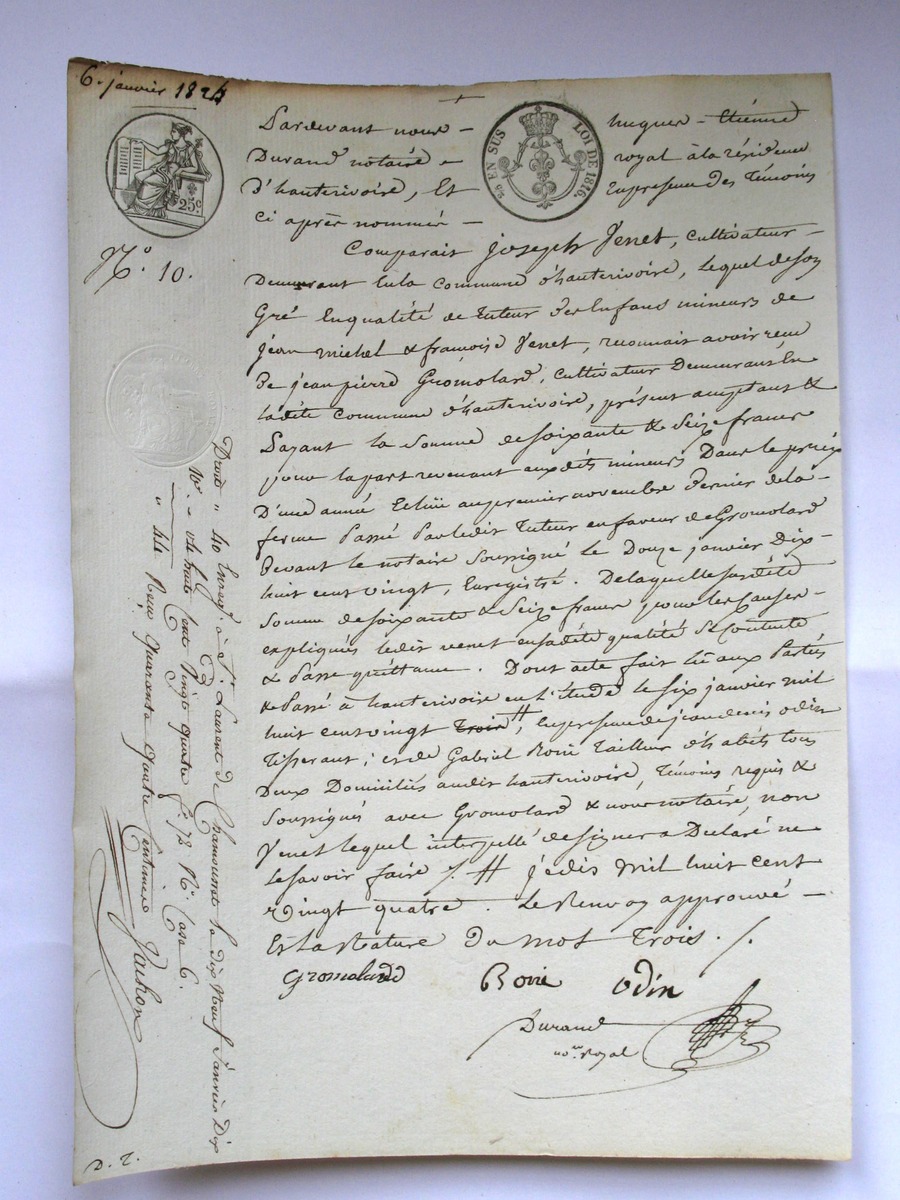 6. janvier 1824
25 c
2es EN SUS LOI DE 1816.
N.o 10.
Pardevant nous – hugues – Etiénne
Durand notaire – royal à la résidence
D'hauterivoire, Et Enpresence des Témoins
Ci après nommés –
Comparait joseph Venet, cultivateur –
Demeurant Enla Commune d'hauterivoire, Lequel deson
Gré Enqualité de Tuteur Des Enfans mineurs de
jean michel & françoise Venet, reconnait avoir recu
De jean pierre Gromolard, cultivateur Demeurant En
ladite Commune d'hauterivoire, présent acceptant &
Payant la Somme desoixante & Seize francs
pour lapart revenant auxdits mineurs Dans le prix
D'une année Echue aupremier novembre Dernier de la –
ferme Passé Parledit Tuteur enfaveur de Gromolard
Devant le notaire Soussigné le Douze janvier Dix –
huit cent vingt, Enregistré. Delaquelle susdite
Somme de soixante & Seize francs pour les Causes –
expliquées ledit venet ensadite qualité Se Contente
& Passe quittance. Dont acte fait lû aux Parties
& Passé à hauterivoire en l'étude le Six janvier mil
huit cent vingt Trois #, Enpresence de jean denis odin
Tisserant; et de Gabriel Roire Tailleur d'habits tous
Deux Domiciliés audit hauterivoire, Témoins requis &
Soussignés avec Gromolard & nous notaire, non
Venet lequel interpellé designer a Déclaré ne
le savoir faire /. # je dis Mil huit cent
Vingt quatre. Le Renvoy approuvé –
Et la Rature du mot Trois. /.
Gromolard Roire Odin
Durand
no.re Royal
Droits " 40 Enreg.é à S.t Laurent de Chamousset le dix Neuf Janvier Dix
10.e " 04 huit Cent Vingt quatre f.o 72 R.o Case 6.
" 44 Reçu Quarante Quatre Centimes
D. T.